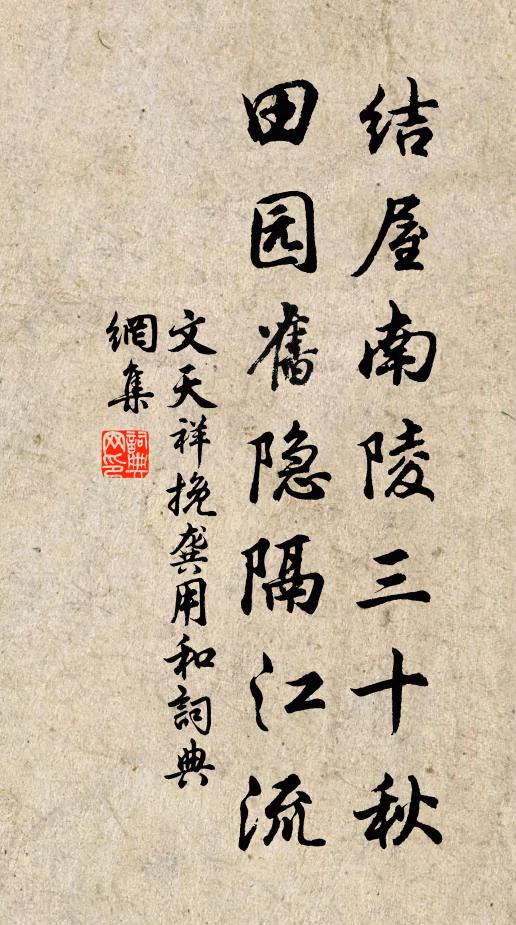 结屋南陵三十秋
田园舊隐隔江流
文天祥挽龚用和詞典
網集
詞典
网印